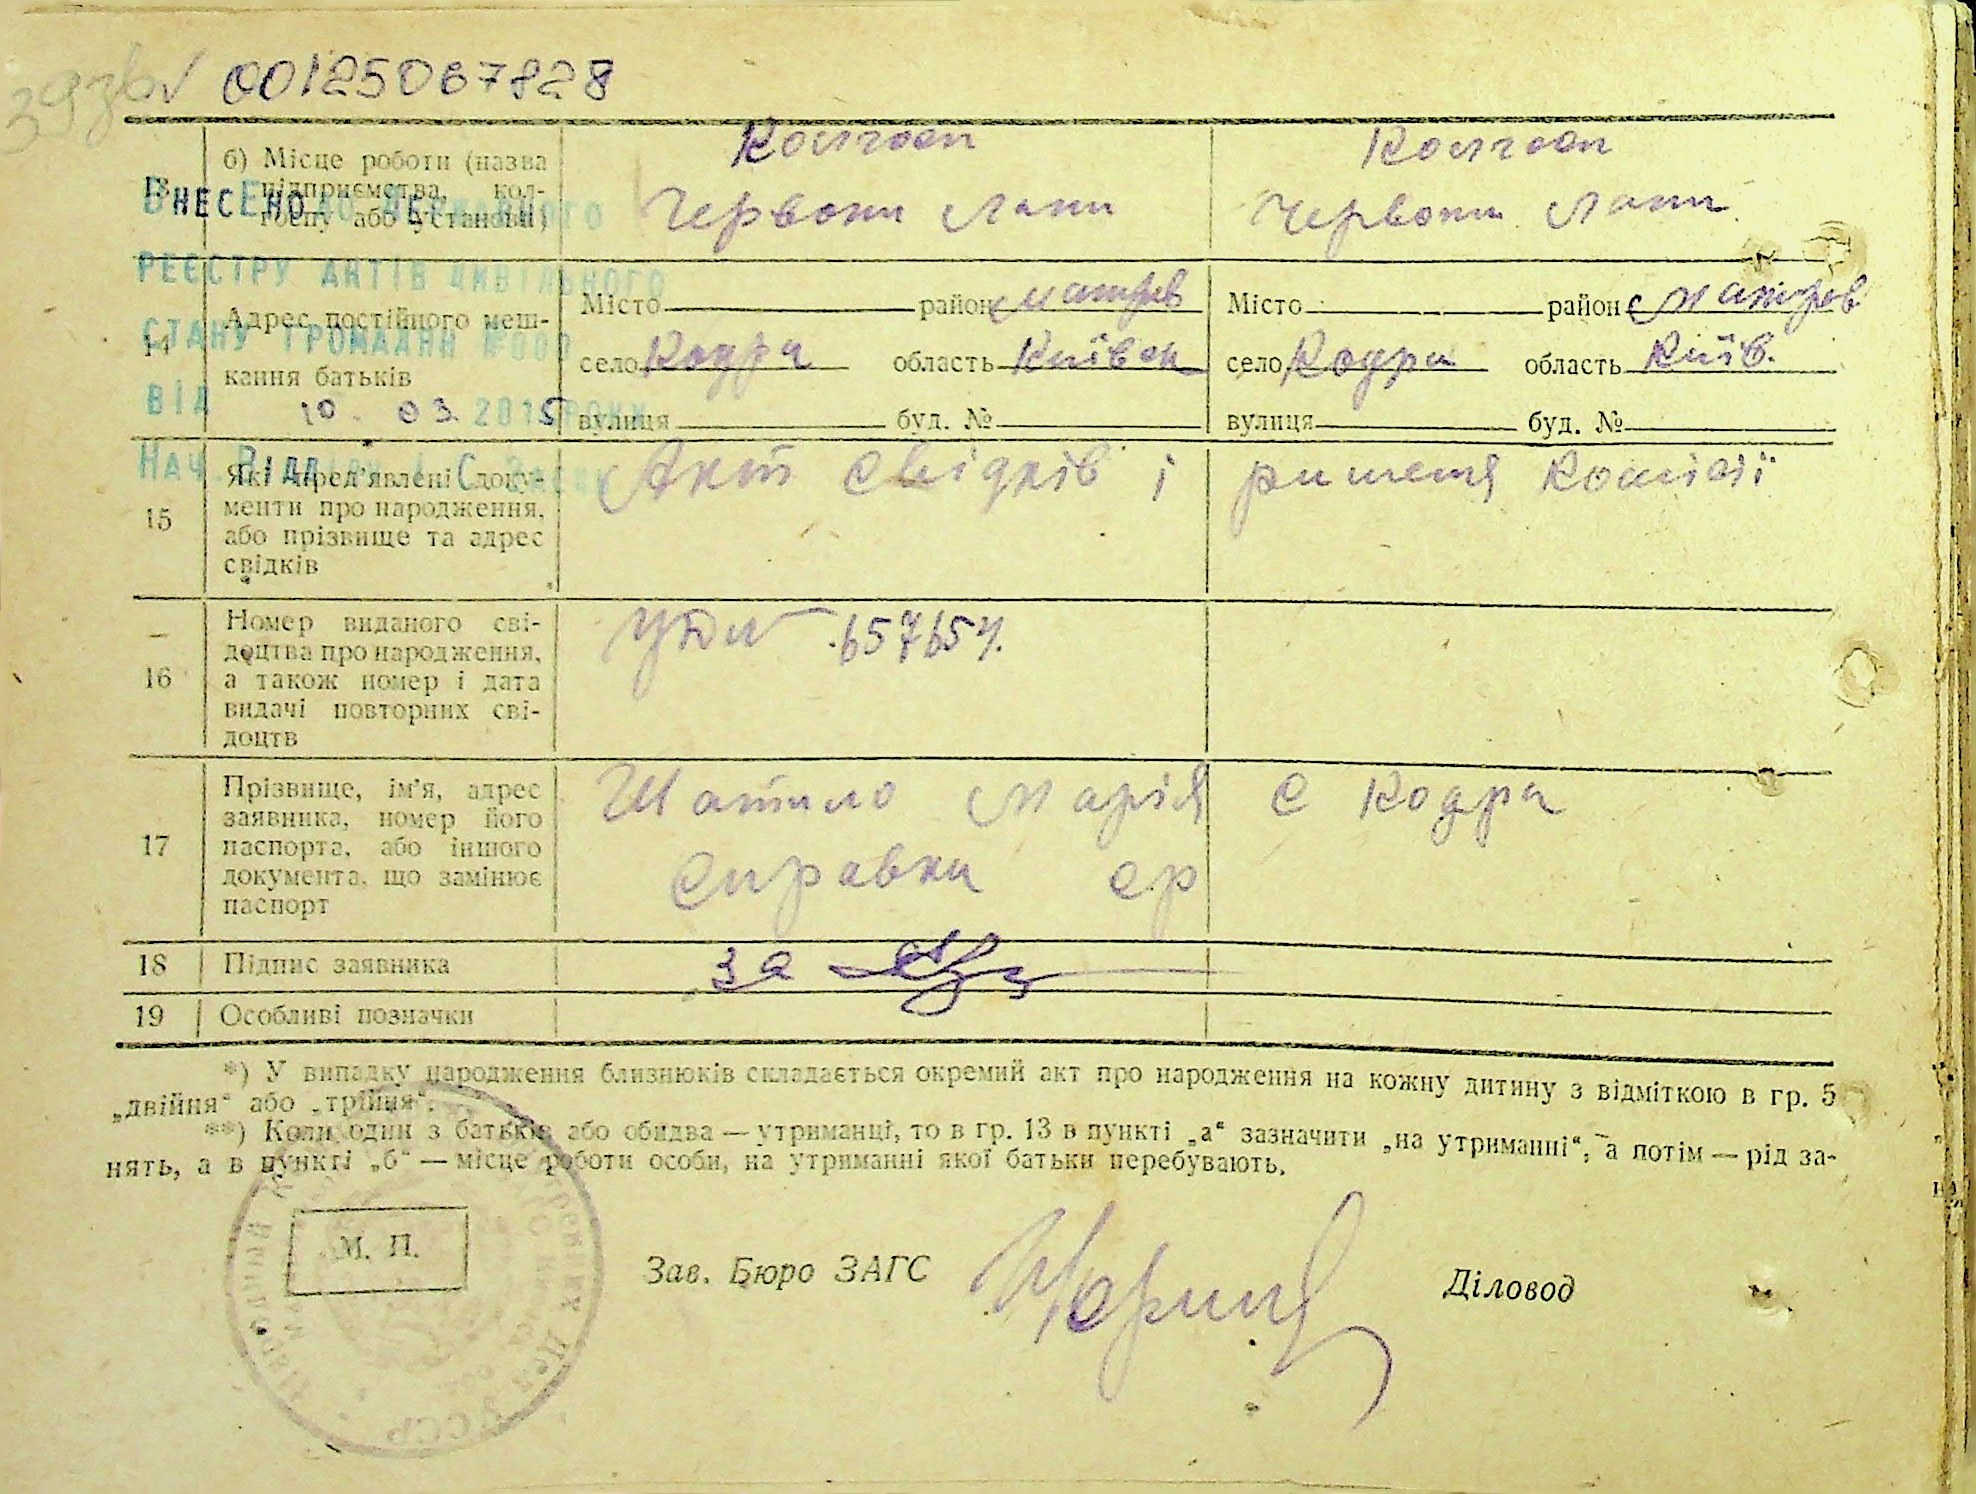 00125067828
13 б) Місце роботи (назва підприємства, колгоспу або установи)
Колгосп Червони Лани
Колгосп Червони Лани
ВНЕСЕНО ДО ДЕРЖАВНОГО
РЕЄСТРУ АКТІВ ЦИВІЛЬНОГО
СТАНУ ГРОМАДЯН
ВІД 10. 03. 2015 РОКУ
НАЧ. ВІДДІЛУ
14 Адрес постійного мешкання батьків
Місто район Макарів
село Кодра область Київськ
вулиця буд. №
Місто район Макарів
село Кодра область Київ.
вулиця буд. №
15 Які пред'явлені документи про народження, або прізвище та адрес свідків
Акт свідків і рішення комісії
16 Номер виданого свідоцтва про народження, а також номер і дата видачі повторних свідоцтв
17 Прізвище, ім'я, адрес заявника, номер його паспорта, або іншого документа, що замінює паспорт
Шатило Марія с Кодра
Справка ср
18 Підпис заявника
за
19 Особливі позначки
*) У випадку народження близнюків складається окремий акт про народження на кожну дитину з відміткою в гр. 5
„двійня“ або „трійня“.
**) Коли один з батьків або обидва — утриманці, то в гр. 13 в пункті „а“ зазначити „на утриманні“, а потім — рід за-
нять, а в пункті „б“ — місце роботи особи, на утриманні якої батьки перебувають.
М. П.
Зав. Бюро ЗАГС
Діловод